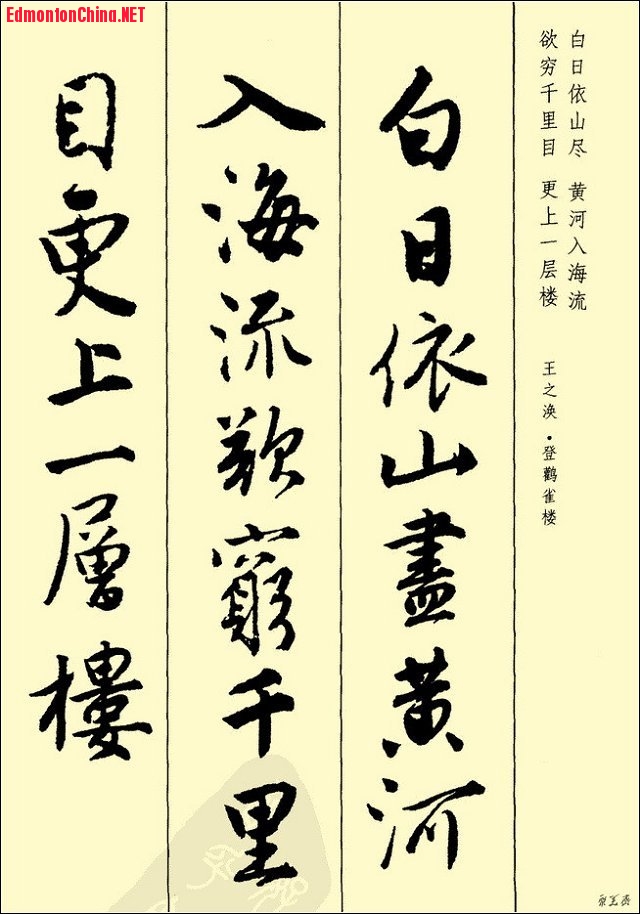 EdmontonChina.NET
白日依山尽 黄河入海流
欲穷千里目 更上一层楼
王之涣·登鹳雀楼
白日依山盡黄河
入海流欲窮千里
目更上一層樓